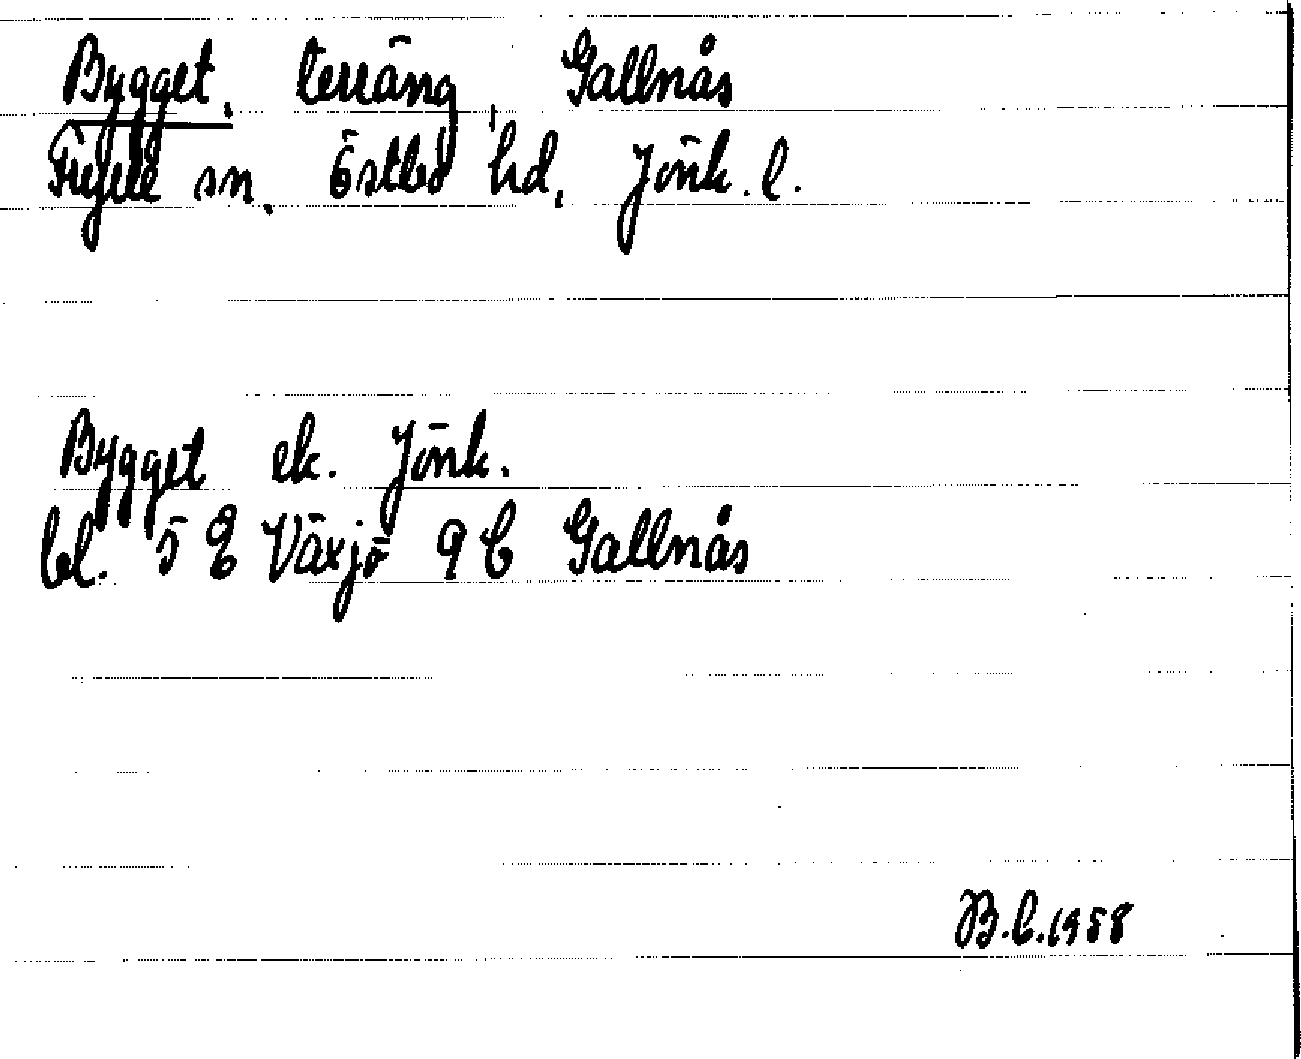 Bygget, terräng, Gallnås
Fryele sn. Östbo hd, Jönk. l.
Bygget ek. Jönk.
bl. 5 E Växjö 9 b Gallnås
B.C. 1958